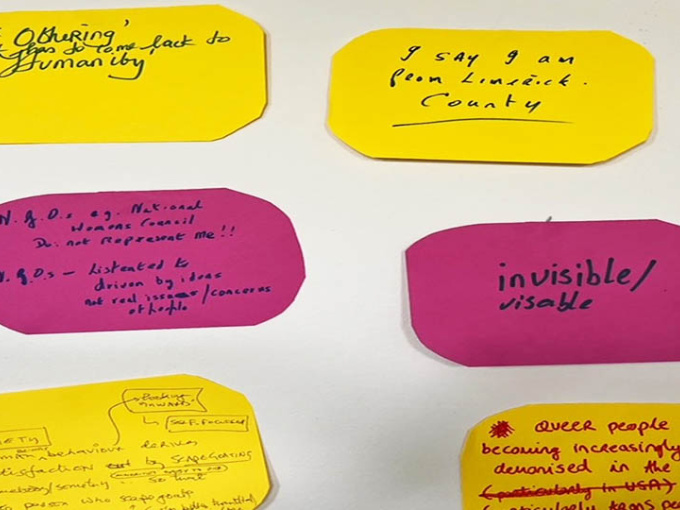 'Othering'
has to come back to
Humanity'
I SAY I am
from Limerick.
County
N.G.O.s e.g. National
Womens Council
Do not represent me!!
N.G.O.s - Listened to
driven by ideas
not real issues/concerns
of people
invisible/
visable
Looking
INWARD
SELF-FOCUSED
behaviour derives
by SCAPEGOATING
person who scapegoats
QUEER people
becoming increasingly
demonised in the
(particularly in USA)